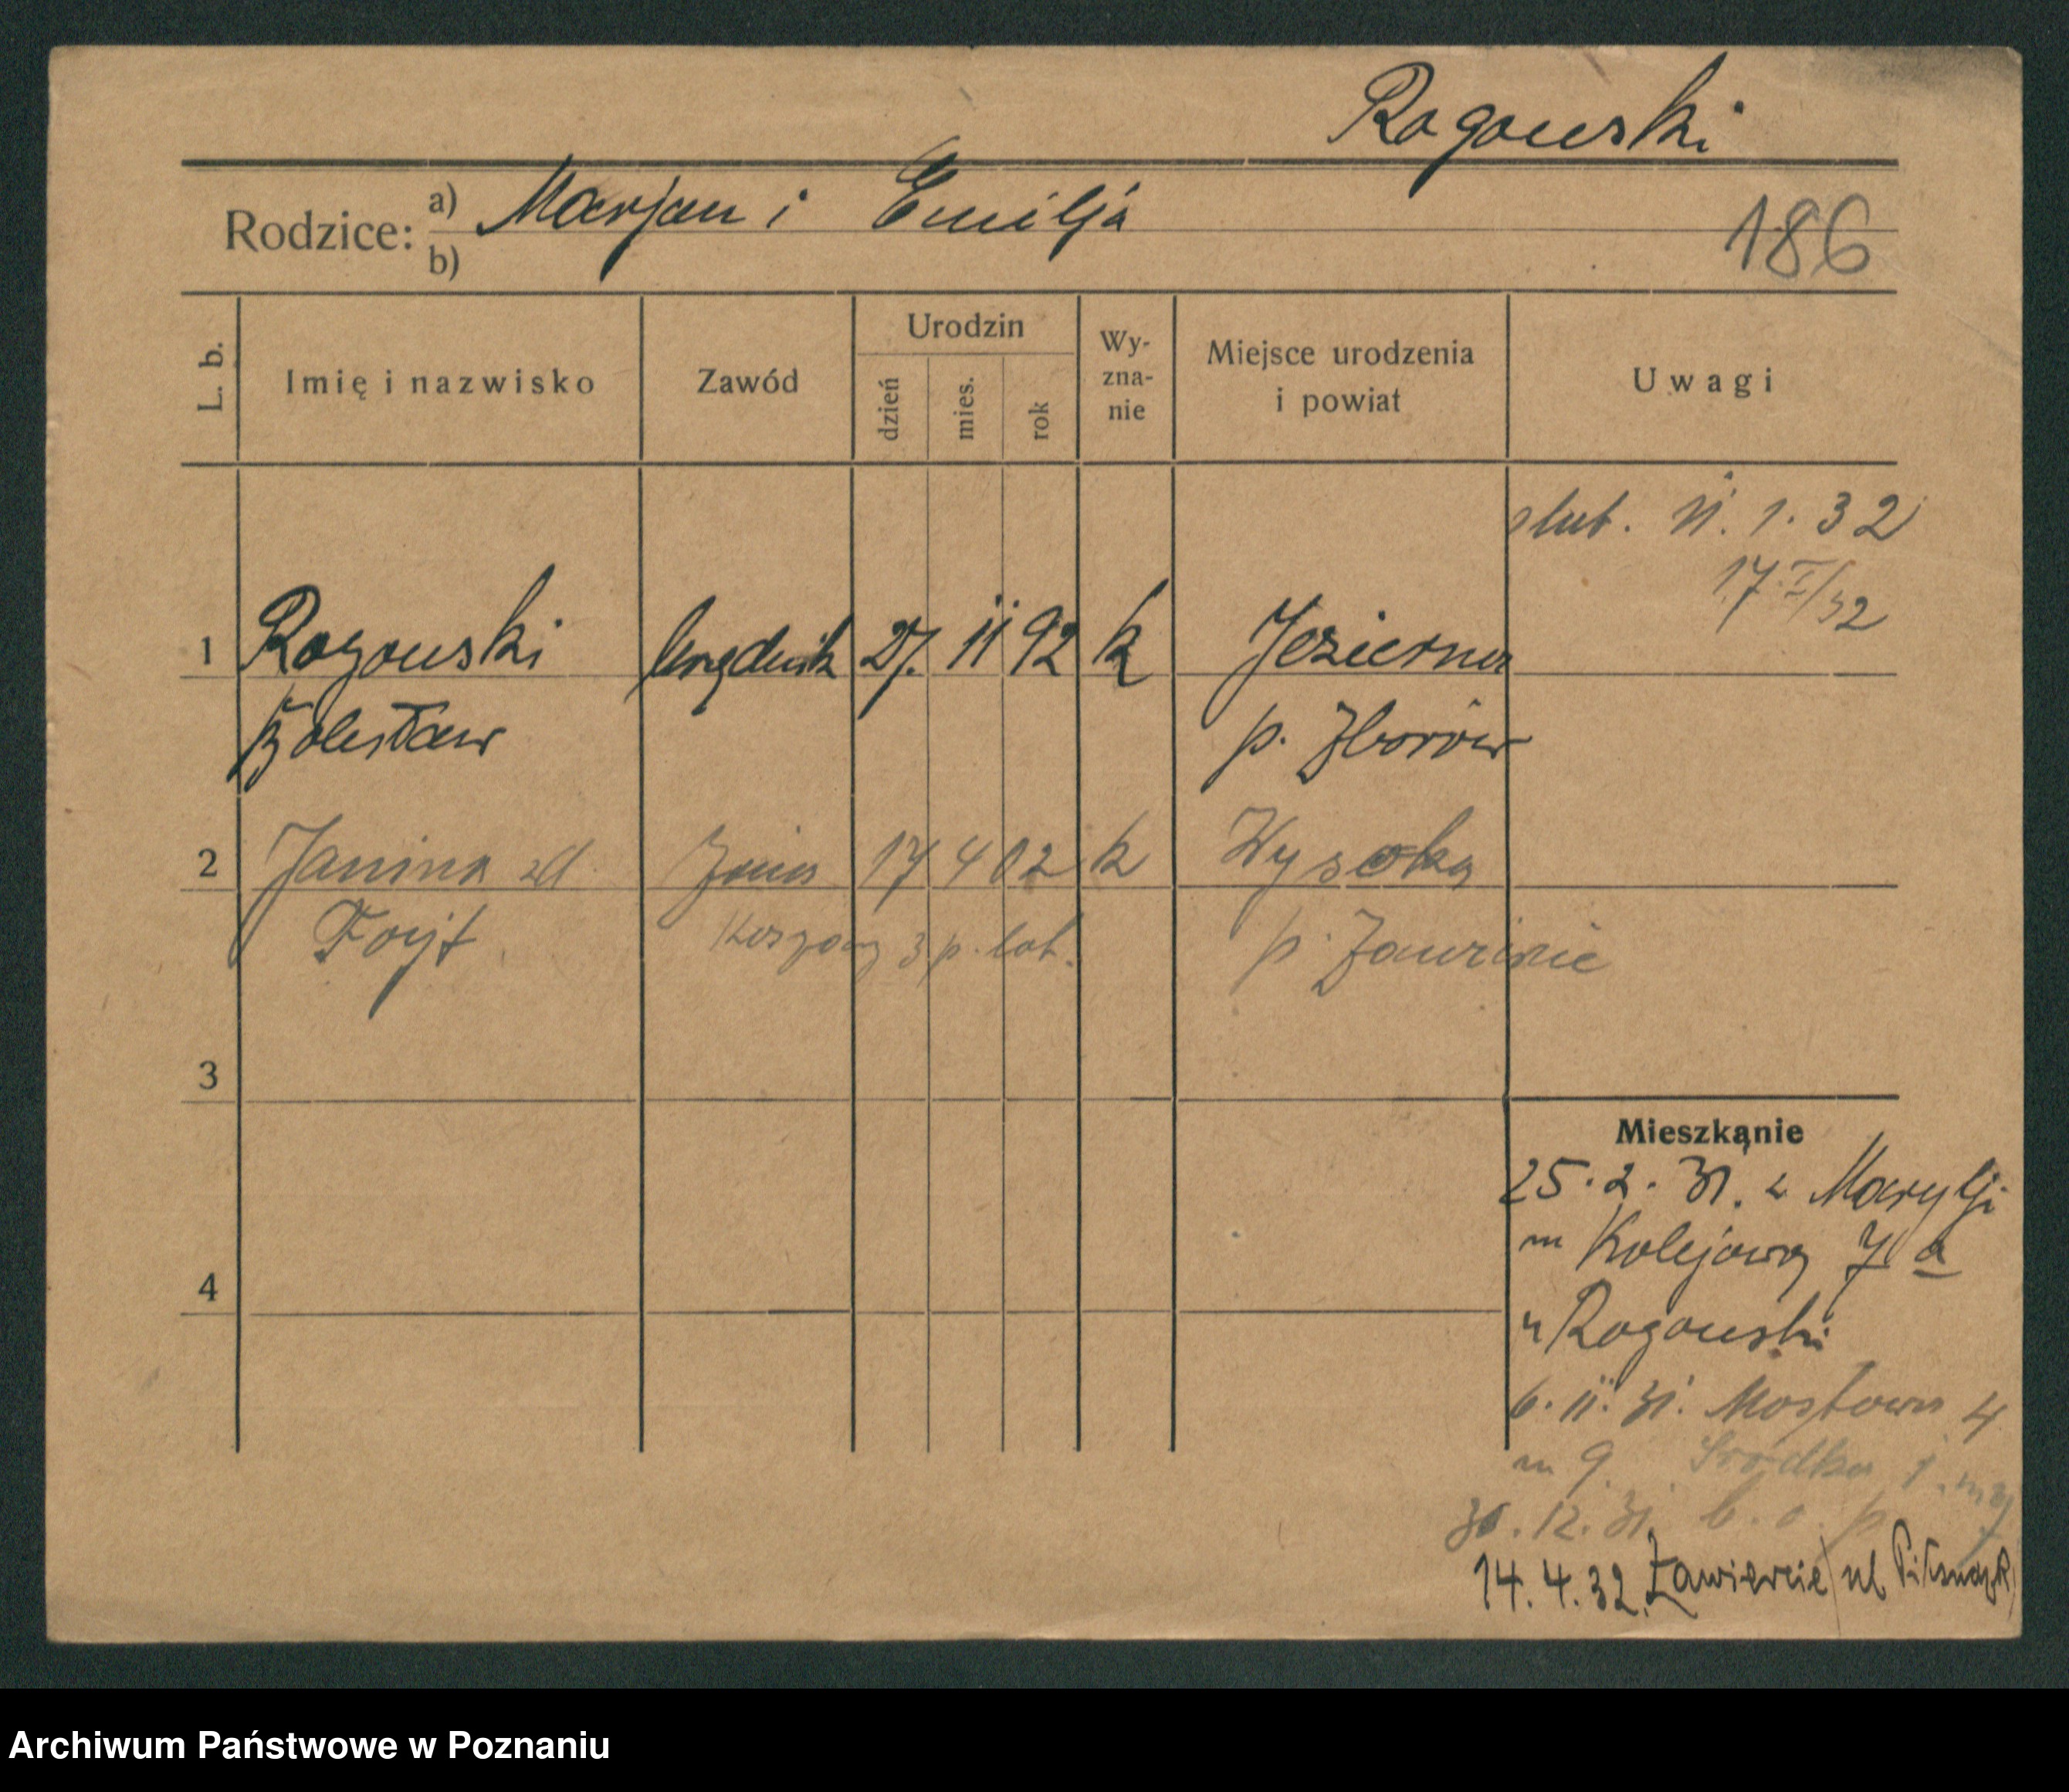 Rogowski
Rodzice: a) Marjan i Emilja
b)
186
L. b. Imię i nazwisko Zawód Urodzin dzień mies. rok Wy-zna-nie Miejsce urodzenia i powiat Uwagi
ślub. 11. 1. 32
17 I/32
1 Rogowski Urzędnik 27. 11 92 k Jezierna
Bolesław p. Zborów
2 Janina zd żona 17 4 02 k Wysoka
Fojt 3 p. lot. p. Zawiercie
3
4
Mieszkanie
25. 2. 31. z Marylji
m Kolejową 7 a
u Rogowski
6. 11. 31. Mostowa 4
m 9. Śródka 1.
30. 12. 31. b. o. p
14. 4. 32. Zawiercie ul